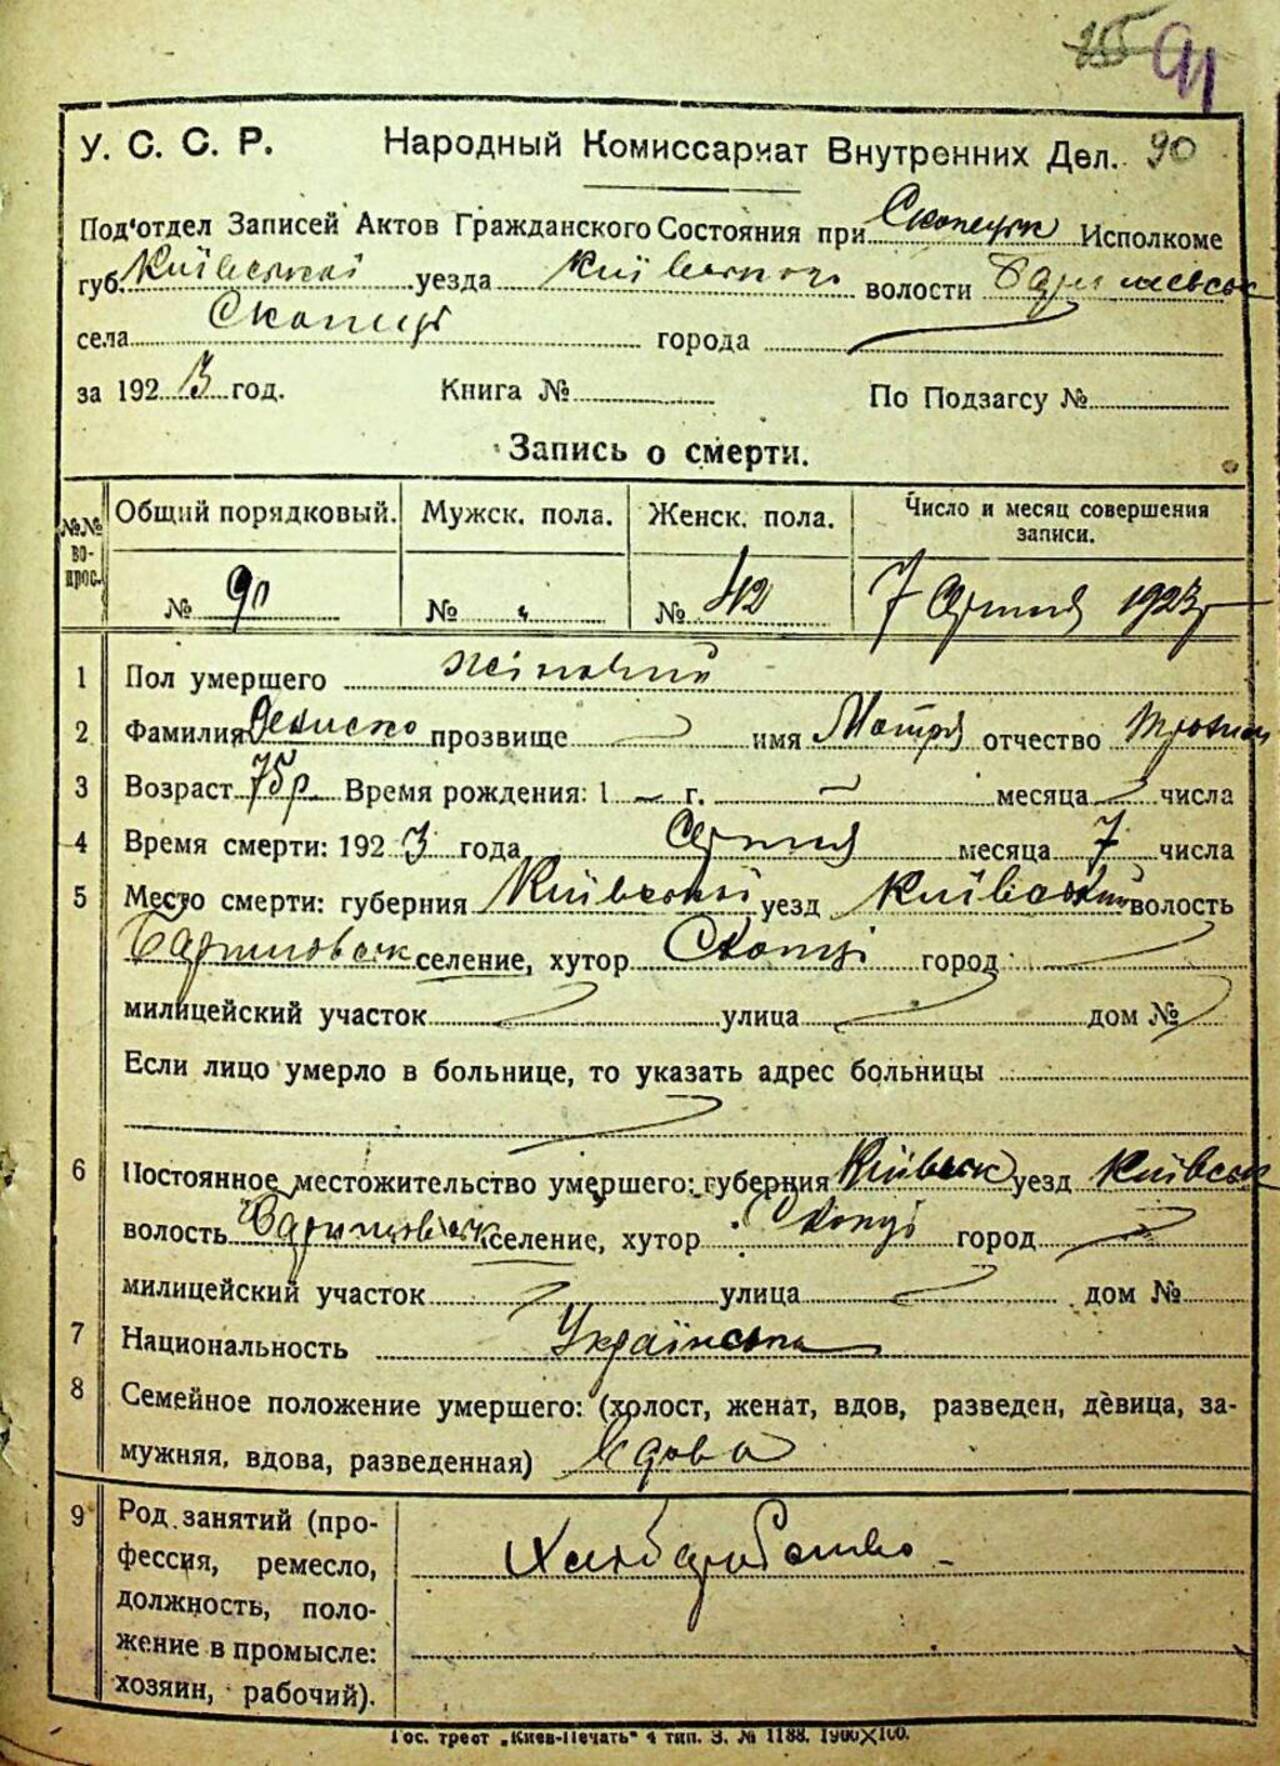 255 91
У. С. С. Р. Народный Комиссариат Внутренних Дел. 90
Под'отдел Записей Актов Гражданского Состояния при Скопецк Исполкоме
губ. Київської уезда Київського волости Баришевськ
села Скопці города
за 1923 год. Книга № По Подзагсу №
Запись о смерти.
№№ вопрос. Общий порядковый. Мужск. пола. Женск. пола. Число и месяц совершения записи.
№ 90 № № 42 7 Серпня 1923 р
1 Пол умершего жіночий
2 Фамилия прозвище имя Мотря отчество
3 Возраст 75 р Время рождения: 1 г. месяца числа
4 Время смерти: 1923 года Серпня месяца 7 числа
5 Место смерти: губерния Київської уезд Київський волость
Баришовськ селение, хутор Скопці город
милицейский участок улица дом №
Если лицо умерло в больнице, то указать адрес больницы
6 Постоянное местожительство умершего: губерния Київськ уезд Київськ
волость Баришовськ селение, хутор Скопці город
милицейский участок улица дом №
7 Национальность Українська
8 Семейное положение умершего: (холост, женат, вдов, разведен, девица, за-
мужняя, вдова, разведенная) Вдова
9 Род занятий (про-
фессия, ремесло, Хліборобство
должность, поло-
жение в промысле:
хозяин, рабочий).
Гос. трест „Киев-Печать" 4 тип. З. № 1188. 1900X100.